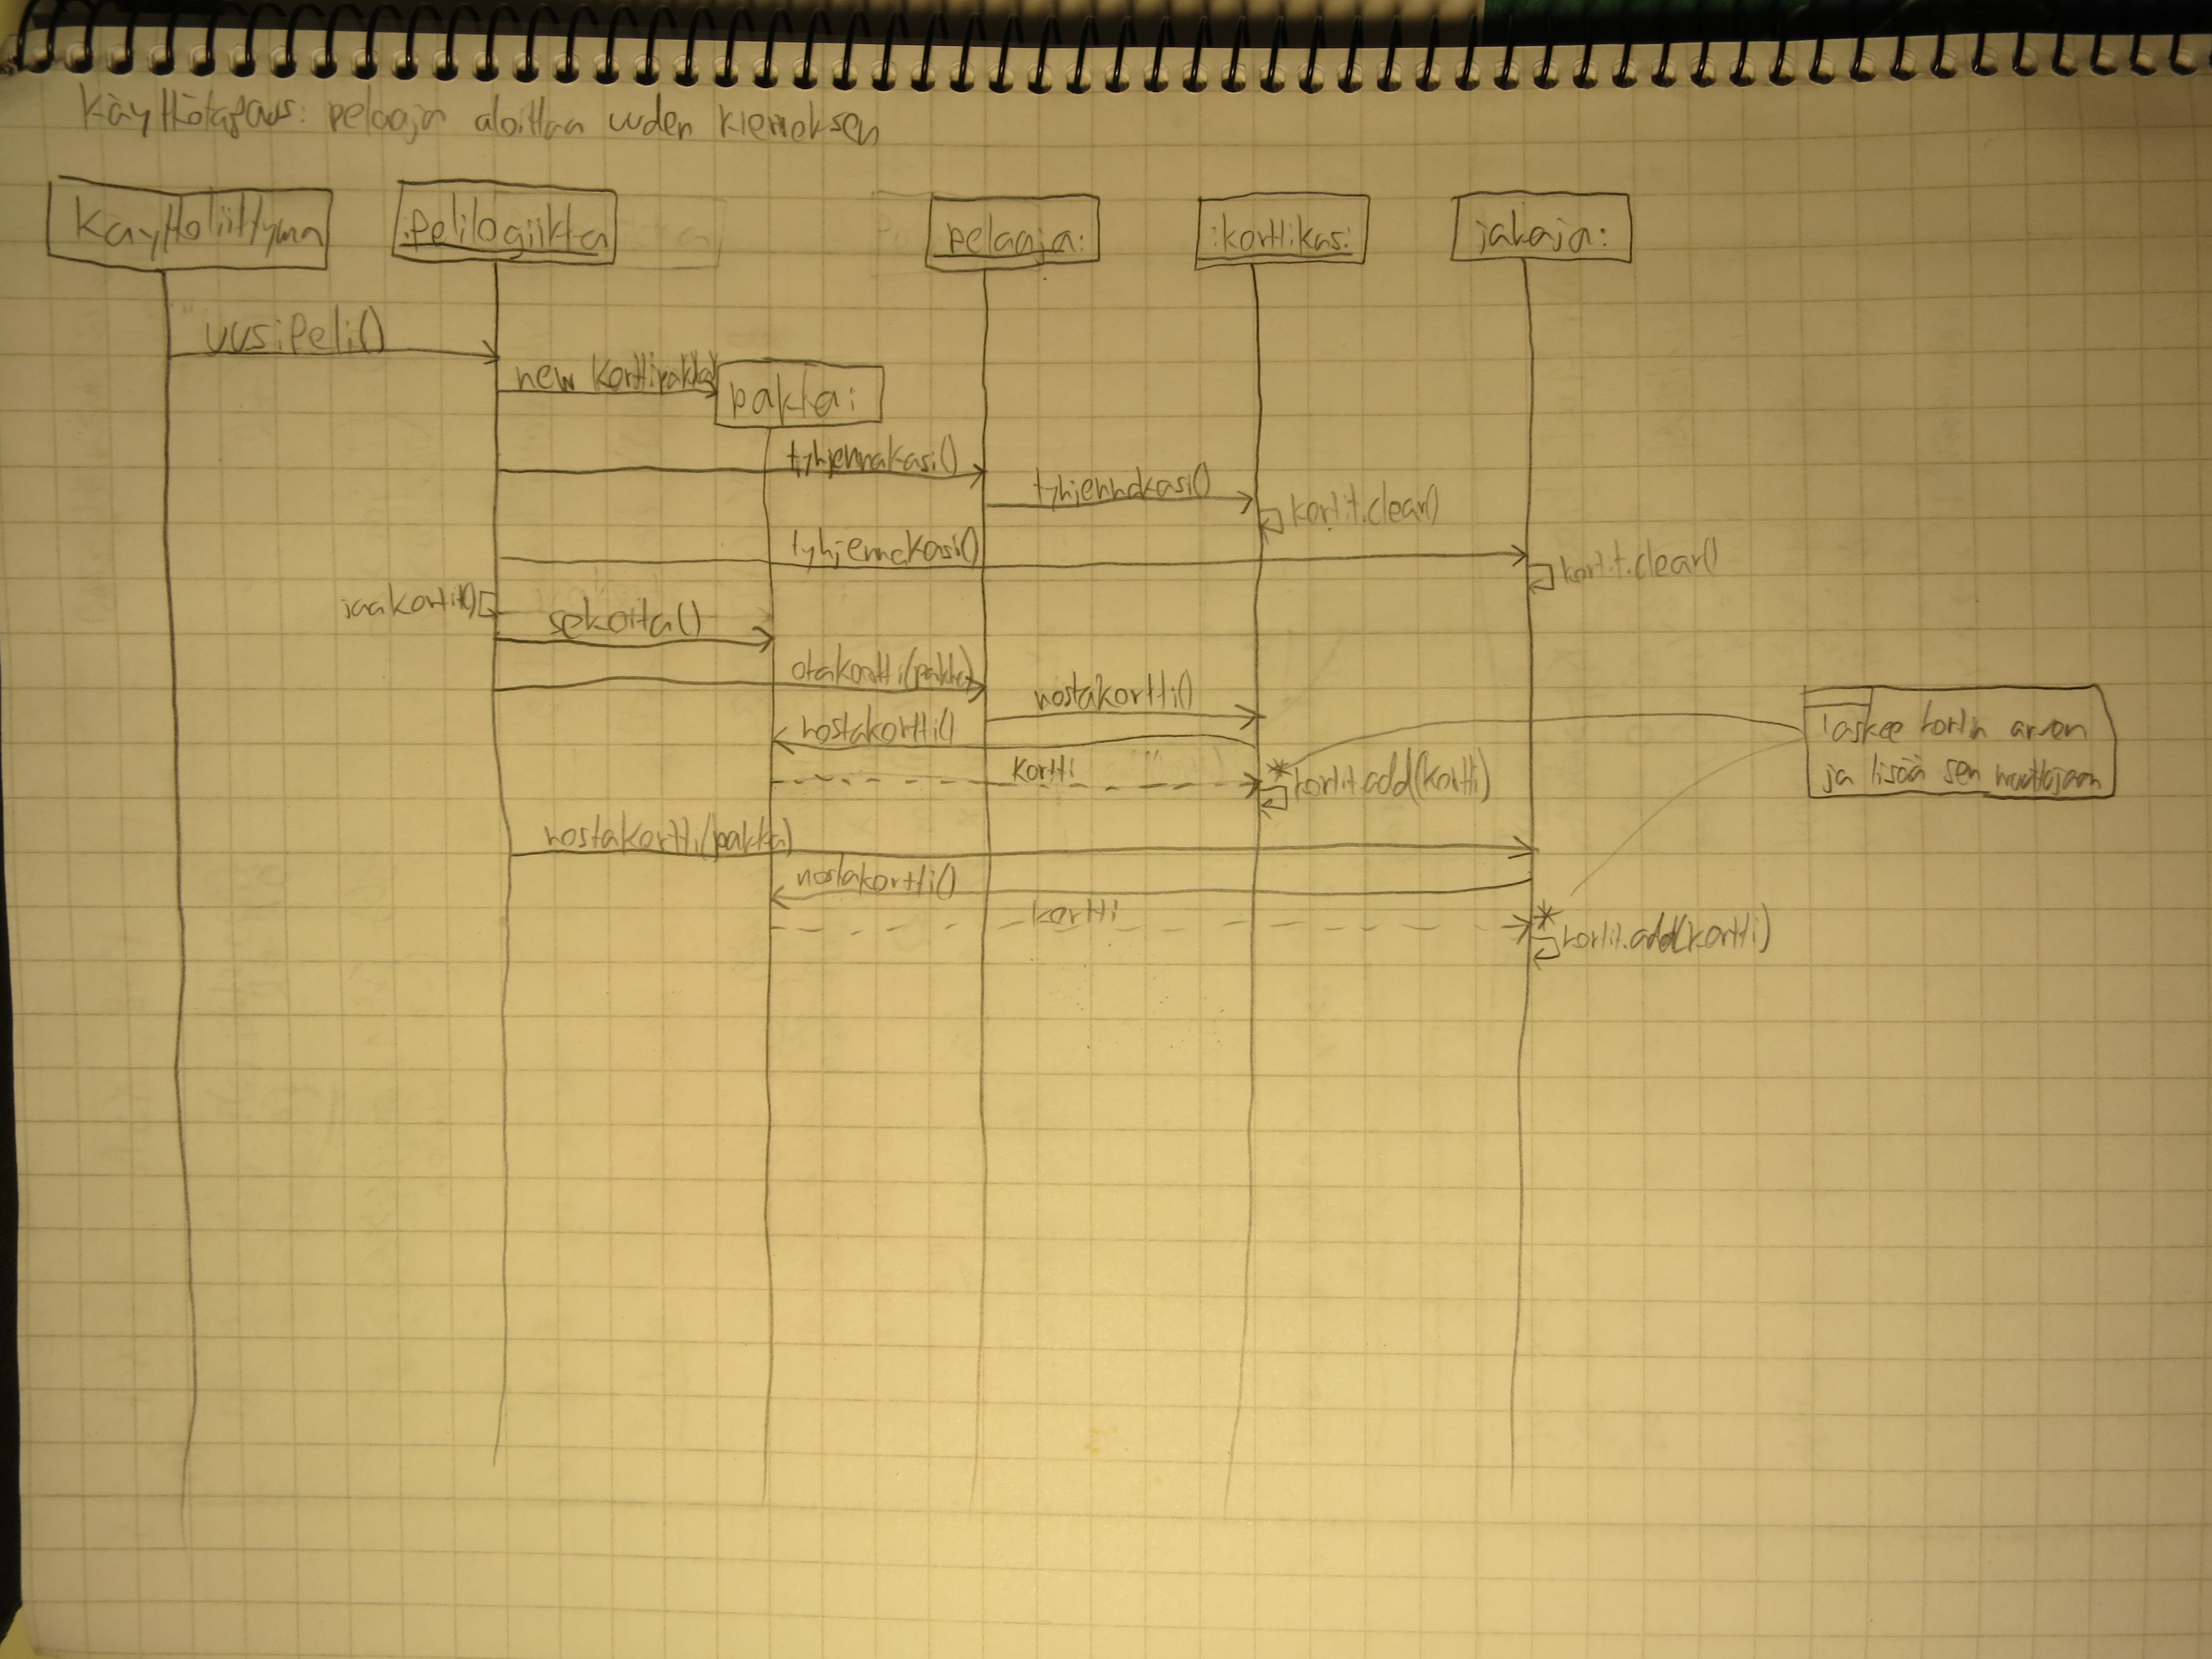 Käyttötapaus: pelaaja aloittaa uuden kierroksen
Käyttöliittymä
:pelilogiikka
pelaaja:
:korttikasi
jakaja:
uusiPeli()
new Korttipakka()
pakka:
tyhjennakasi()
tyhjennakasi()
kortit.clear()
tyhjennakasi()
kortit.clear()
jaakortit()
sekoita()
otakortti(pakka)
nostakortti()
nostakortti()
kortti
* kortit.add(kortti)
laskee kortin arvon
ja lisää sen muuttujaan
nostakortti(pakka)
nostakortti()
kortti
* kortit.add(kortti)